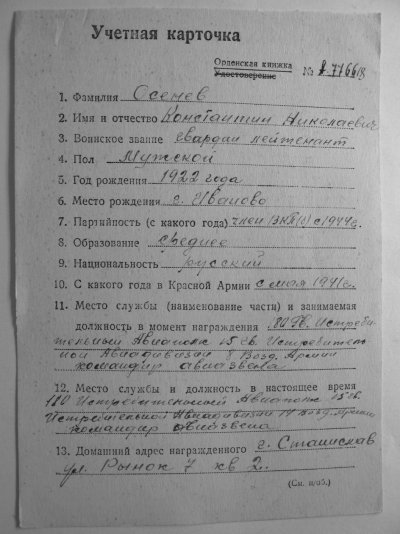 Учетная карточка
Орденская книжка
Удостоверение
№
1. Фамилия Осенев
2. Имя и отчество Константин Николаевич
3. Воинское звание гвардии лейтенант
4. Пол Мужской
5. Год рождения 1922 года
6. Место рождения г. Иваново
7. Партийность (с какого года) член ВКП(б) с 1944 г.
8. Образование среднее
9. Национальность русский
10. С какого года в Красной Армии с мая 1941 г.
11. Место службы (наименование части) и занимаемая
должность в момент награждения Гв. Истреби-
тельный Авиаполк Гв. Истребитель
ной Авиадивизии 8 Возд. Армии
командир авиазвена
12. Место службы и должность в настоящее время
Истребительный Авиаполк
Истребительной Авиадивизии Возд. Армии
командир авиазвена
13. Домашний адрес награжденного г. Станислав
ул. Рынок 7 кв 2.
(См. н/об.)